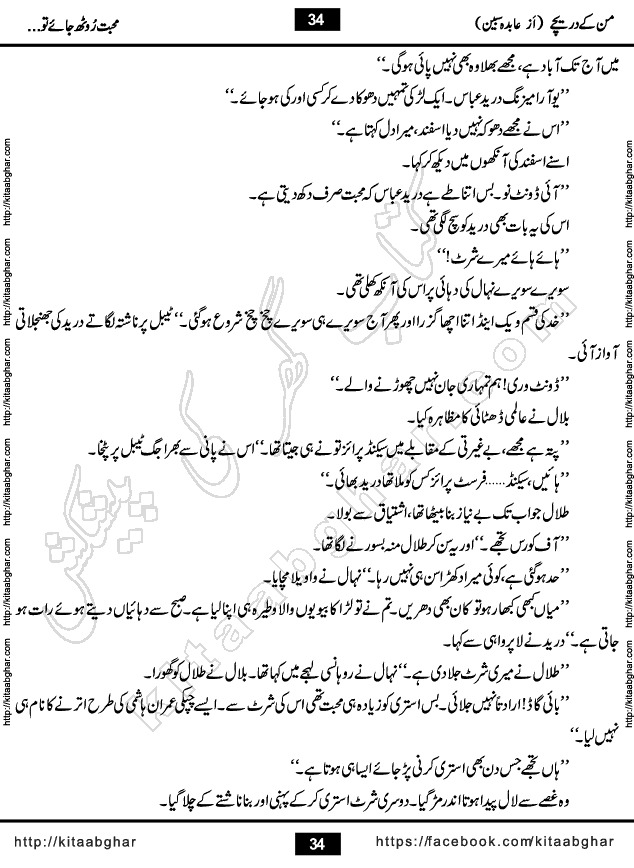 من کے دریچے (از عابدہ سبین)
34
محبت رُوٹھ جائے تو...
میں آج تک آباد ہے، مجھے بھلا وہ بھی نہیں پائی ہوگی۔‘‘
’’یو آر امیزنگ درید عباس۔ ایک لڑکی تمہیں دھوکا دے کر کسی اور کی ہو جائے۔‘‘
’’اس نے مجھے دھوکہ نہیں دیا اسفند، میرا دل کہتا ہے۔‘‘
اسنے اسفند کی آنکھوں میں دیکھ کر کہا۔
’’آئی ڈونٹ نو۔ بس اتنا طے ہے درید عباس کہ محبت صرف دکھ دیتی ہے۔
اس کی یہ بات بھی درید کو سچ لگی تھی۔
’’ہائے ہائے میرے شرٹ!‘‘
سویرے سویرے نہال کی دہائی پر اس کی آنکھ کھلی تھی۔
’’خد کی قسم ویک اینڈ اتنا اچھا گزرا اور پھر آج سویرے ہی سویرے چخ چخ شروع ہو گئی۔‘‘ ٹیبل پر ناشتہ لگاتے درید کی جھنجلاتی
آواز آئی۔
’’ڈونٹ وری! ہم تمہاری جان نہیں چھوڑنے والے۔‘‘
بلال نے عالمی ڈھٹائی کا مظاہرہ کیا۔
’’پتہ ہے مجھے، بے غیرتی کے مقابلے میں سیکنڈ پرائز تو نے ہی جیتا تھا۔‘‘ اس نے پانی سے بھرا جگ ٹیبل پر پٹخا۔
’’ہائیں، سیکنڈ......فرسٹ پرائز کس کو ملا تھا درید بھائی۔‘‘
طلال جو اب تک بے نیاز بنا بیٹھا تھا، اشتیاق سے بولا۔
’’آف کورس تجھے۔‘‘ اور یہ سن کر طلال منہ بسورنے لگا تھا۔
’’حد ہو گئی ہے، کوئی میرا دکھڑا سن ہی نہیں رہا۔‘‘ نہال نے واویلا مچایا۔
’’میاں کبھی کبھار ہو تو کان بھی دھریں۔ تم نے تو لڑاکا بیویوں والا وطیرہ ہی اپنا لیا ہے۔ صبح سے دہائیاں دیتے ہوئے رات ہو
جاتی ہے۔‘‘ درید نے لا پرواہی سے کہا۔
’’طلال نے میری شرٹ جلا دی ہے۔‘‘ نہال نے روہانسی لہجے میں کہا تھا۔ بلال نے طلال کو گھورا۔
’’بائی گاڈ! ارادتا نہیں جلائی۔ بس استری کو زیادہ ہی محبت تھی اس کی شرٹ سے۔ ایسے چپکی عمران ہاشمی کی طرح اترنے کا نام ہی
نہیں لیا۔‘‘
’’ہاں تجھے جس دن بھی استری کرنی پڑ جائے ایسا ہی ہوتا ہے۔‘‘
وہ غصے سے لال پیدا ہوتا اندر مڑ گیا۔ دوسری شرٹ استری کر کے پہنی اور بنا ناشتے کے چلا گیا۔
http://kitaabghar
34
https://facebook.com/kitaabghar
http://kitaabghar.com
http://kitaabghar.com
http://kitaabghar.com
http://kitaabghar.com
http://kitaabghar.com
http://kitaabghar.com
http://kitaabghar.com
http://kitaabghar.com
http://kitaabghar.com
http://kitaabghar.com
http://kitaabghar.com
http://kitaabghar.com
کتاب گھر کی پیشکش
kitaabghar.com